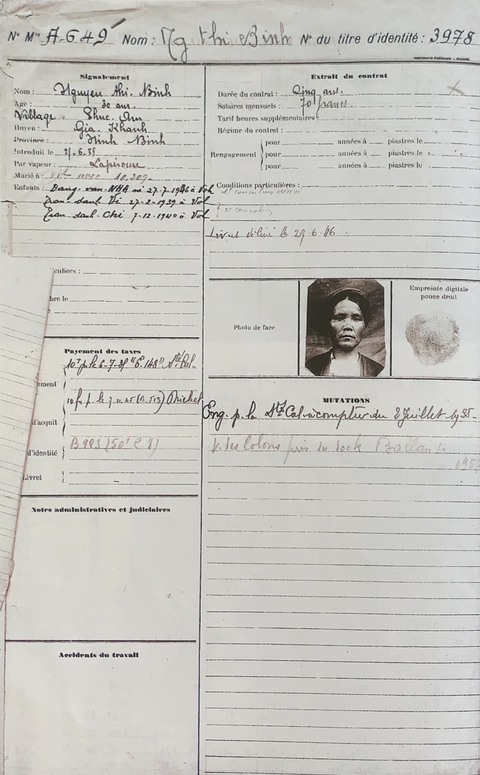 N° Mle A.649 Nom : Ng thi Binh N° du titre d'identité : 3978
Signalement
Nom : Nguyen thi Binh
Age : 30 ans.
Village Phuc. Am
Huyen : Gia. Khanh
Province : Ninh Binh
Introduit le 21.6.35
Par vapeur : Lapérouse
Marié à avec 10.209.
Enfants : Dang van NHO né 27.7.1936 à Voh
Tran danh Vi 27-2-1939 à Voh
Tran danh Chi 7-12-1940 à Voh
culiers :
bre le
Payement des taxes
ement
d'acquit
d'identité B 993 (50f C 9)
Livret
Notes administratives et judiciaires
Accidents du travail
Extrait du contrat
Durée du contrat : Cinq ans.
Salaires mensuels : 70 francs
Tarif heures supplémentaires
Régime du contrat :
Rengagement
pour années à piastres le
pour années à piastres le
pour années à piastres le
Conditions particulières :
Livret délivré le 29.6.46
Photo de face
Empreinte digitale
pouce droit
MUTATIONS
Eng. p. la Sté Cal. à compter du 2 Juillet 1935-